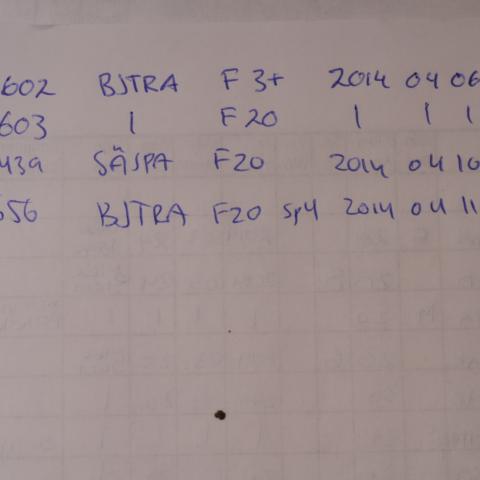 602 BJTRA F 3+ 2014 04 06
603 | F 20 | | |
439 SÄSPA F20 2014 04 10
556 BJTRA F20 Sp4 2014 04 11